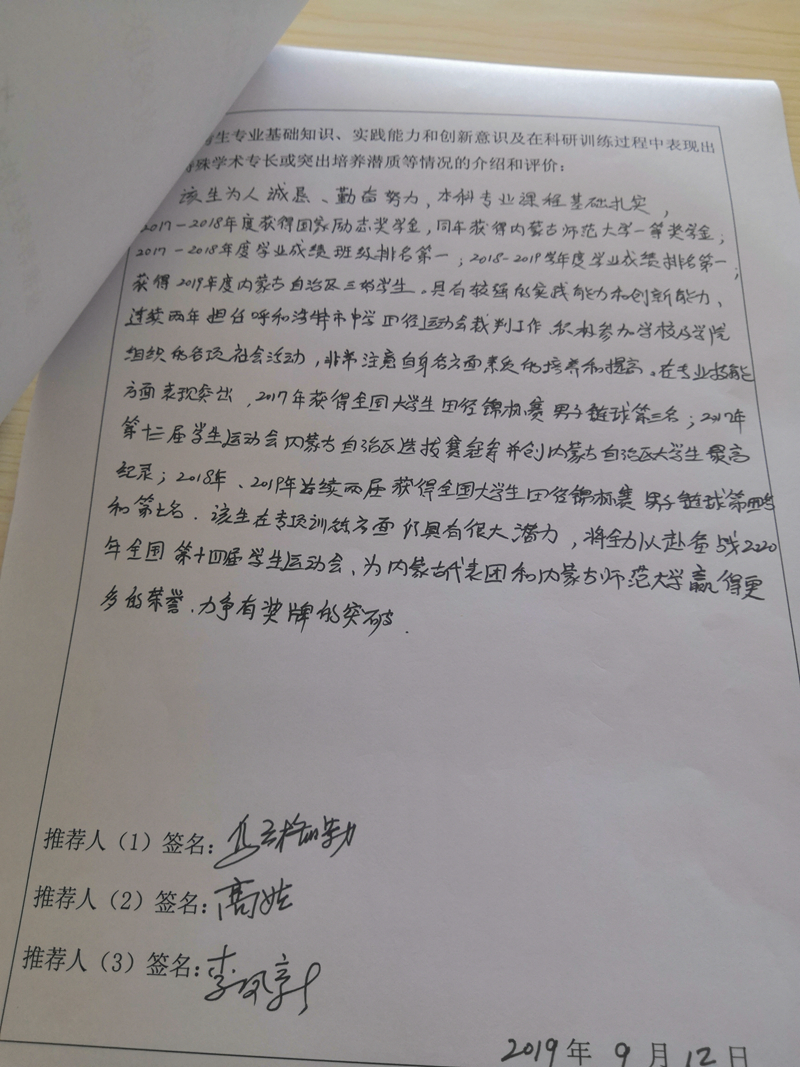 生专业基础知识、实践能力和创新意识及在科研训练过程中表现出
殊学术专长或突出培养潜质等情况的介绍和评价：
该生为人诚恳、勤奋努力，本科专业课程基础扎实，
2017-2018年度获得国家励志奖学金，同年获得内蒙古师范大学一等奖学金；
2017-2018年度学业成绩班级排名第一；2018-2019学年度学业成绩排名第一；
获得2019年度内蒙古自治区三好学生。具有较强的实践能力和创新能力、
连续两年担任呼和浩特市中学田径运动会裁判工作.积极参加学校及学院
组织的各项社会活动，非常注意自身各方面素质的培养和提高。在专业技能
方面表现突出，2017年获得全国大学生田径锦标赛男子链球第三名；2017年
第十三届学生运动会内蒙古自治区选拔赛冠军并创内蒙古自治区大学生最高
纪录；2018年、2019年连续两届获得全国大学生田径锦标赛男子链球第四名
和第七名.该生在专项训练方面仍具有很大潜力，将全力以赴备战2020
年全国第十四届学生运动会、为内蒙古代表团和内蒙古师范大学赢得更
多的荣誉.力争有奖牌的突破.
推荐人（1）签名：
推荐人（2）签名：高娃
推荐人（3）签名：李凤新
2019年9月12日